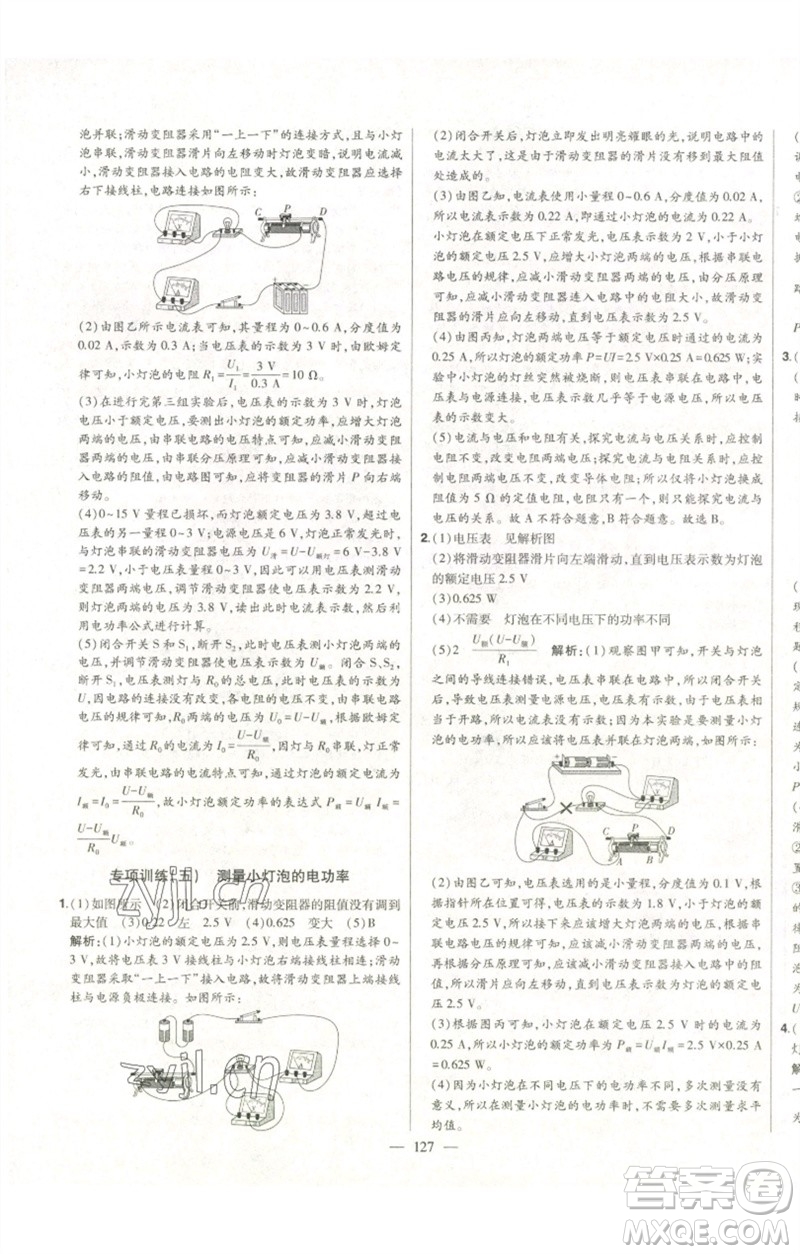 泡并联;滑动变阻器采用“一上一下”的连接方式,且与小灯
泡串联,滑动变阻器滑片向左移动时灯泡变暗,说明电流减
小,则滑动变阻器接入电路的电阻变大,滑动变阻器应选择
右下接线柱,电路连接如图所示:
C P D
(2)由图乙所示电流表可知,其量程为 0~0.6 A,分度值为
0.02 A,示数为 0.3 A;当电压表的示数为 3 V 时,由欧姆定
律可知,小灯泡的电阻 R₁=U₁/I₁=3 V/0.3 A=10 Ω。
(3)在进行完第三组实验后,电压表的示数为 3 V,小灯泡
电压小于额定电压,要测出小灯泡的额定功率,应增大小灯泡
两端的电压,由串联电路的电压特点可知,应减小滑动变阻
器两端的电压,由串联分压原理可知,应减小滑动变阻器接
入电路的阻值,故应将滑动变阻器的滑片 P 向右端
移动。
(4)0~15 V 量程已损坏,而灯泡额定电压为 3.8 V,超过电
压表的小量程,根据串联电路电压的规律,灯泡的电压为额
定电压时,滑动变阻器的电压 U滑=U-U额灯=6 V-3.8 V
=2.2 V,在电压表小量程范围内,故将电压表并联在滑动变
阻器的两端,调节滑动变阻器使电压表示数为 2.2 V,
则灯泡的电压为 3.8 V,读出此时电流表的示数,根据
电功率公式进行计算。
(5)闭合开关 S 和 S₁,断开 S₂,电压表测小灯泡两端的电
压,调节滑动变阻器使电压表示数为 U额。闭合 S、S₂,断开
S₁,电压表测灯与 R₀ 的总电压,此时电压表的示数为
U,因电路连接没有改变,各电阻的电压不变,由串联电路
电压规律可知,R₀ 两端的电压为 U-U额,由欧姆定
律可知,通过 R₀ 的电流为 I₀=(U-U额)/R₀,因灯与 R₀ 串联,灯正常
发光,由串联电路的电流特点可知,灯泡的额定电流为
I额=I₀=(U-U额)/R₀,故小灯泡额定功率的表达式 P额=U额I额=
U额·(U-U额)/R₀。
专项训练(五) 测量小灯泡的电功率
1.(1)如图所示 (2)闭合开关前,滑动变阻器的阻值没有调到
最大值 (3)0.22 左 2.5 V (4)0.625 变大 (5)B
解析:(1)小灯泡的额定电压为 2.5 V,则电压表量程选择 0~
3 V,故将电压表的中间接线柱与小灯泡右端接线柱连接;滑动
变阻器采取“一上一下”接入电路,故将滑动变阻器上端接线
柱与电源负极连接。如图所示:
(2)闭合开关后,灯泡立即发出明亮耀眼的光,说明电路中的
电流太大了,这可能是由于滑动变阻器的滑片没有移到最大阻值
处造成的。
(3)由图乙可知,电流表使用小量程 0~0.6 A,分度值为 0.02 A,
所以电流表示数为 0.22 A,即通过小灯泡的电流为 0.22 A。
小灯泡在额定电压下正常发光,电压表示数为 2 V,小于小灯泡
的额定电压 2.5 V,应增大小灯泡两端的电压,根据串联电路
电压规律可知,应减小滑动变阻器两端的电压,由分压原理
可知,应减小滑动变阻器连入电路中的电阻大小,故滑动变
阻器的滑片应向左移动,直到电压表示数为 2.5 V。
(4)由图丙可知,灯泡两端电压等于额定电压时通过的电流为
0.25 A,所以小灯泡的额定功率 P=UI=2.5 V×0.25 A=0.625 W;实
验中小灯泡的灯丝突然被烧断,所以电路断路,电流表无
示数,电压表示数几乎等于电源电压,所以灯丝烧断后电压表
的示数变大。
(5)电流与电压和电阻有关,探究电流与电压关系时,应控制
电阻不变,改变电阻两端电压;探究电流与电阻关系时,应控
制电阻两端电压不变,改变导体电阻;所以仅将小灯泡换成
阻值为 5 Ω 的定值电阻,可以探究电流与电压的关系,不能
探究电流与电阻的关系。故 A 不符合题意,B 符合题意。故选 B。
2.(1)电压表 见解析图
(2)将滑动变阻器滑片向左端滑动,直到电压表示数为灯泡
的额定电压 2.5 V
(3)0.625 W
(4)不需要 灯泡在不同电压下的功率不同
(5)2 U额(U-U额)/R₁ 解析:(1)观察图甲可知,开关与灯泡
之间的导线连接错误,电压表串联在电路中,所以闭合开关
后,导致电压表测量电源电压,灯泡不发光,电流表由于相当
于开路,所以示数几乎为 0;因为本实验是要测量小灯
泡的电功率,所以应该将电压表并联在灯泡两端,如图所示:
C P D
A B
(2)由图乙可知,电压表选用小量程,分度值为 0.1 V,根据
指针所处位置可得,电压表的示数为 1.8 V,小于灯泡额定电
压 2.5 V,所以接下来应该增大灯泡两端的电压;根据
串联电路电压规律可知,应该减小滑动变阻器两端的电压,
再根据分压原理,应该减小滑动变阻器连入电路的阻值,所以
应该将滑动变阻器滑片向左端滑动,直到电压表示数为灯泡
的额定电压 2.5 V。
(3)根据图丙可知,小灯泡在额定电压 2.5 V 时的电流为
0.25 A,所以小灯泡的额定功率为 P额=U额I额=2.5 V×0.25 A
=0.625 W。
(4)因为小灯泡在不同电压下的电功率不同,多次测量没有
意义,所以小灯泡的电功率时,不需要多次测量求平
均值。
— 127 —
zyjl.cn
答案圈
MXQE.COM